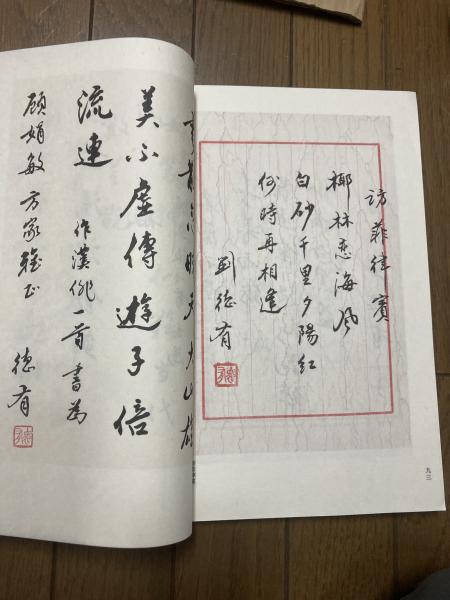 訪菲律賓
椰林恋海風
白砂千里夕陽紅
何時再相逢
劉德有
九三
美不虛傳遊子倍
流連
作漢俳一首書為
顧娟敏方家雅正
德有